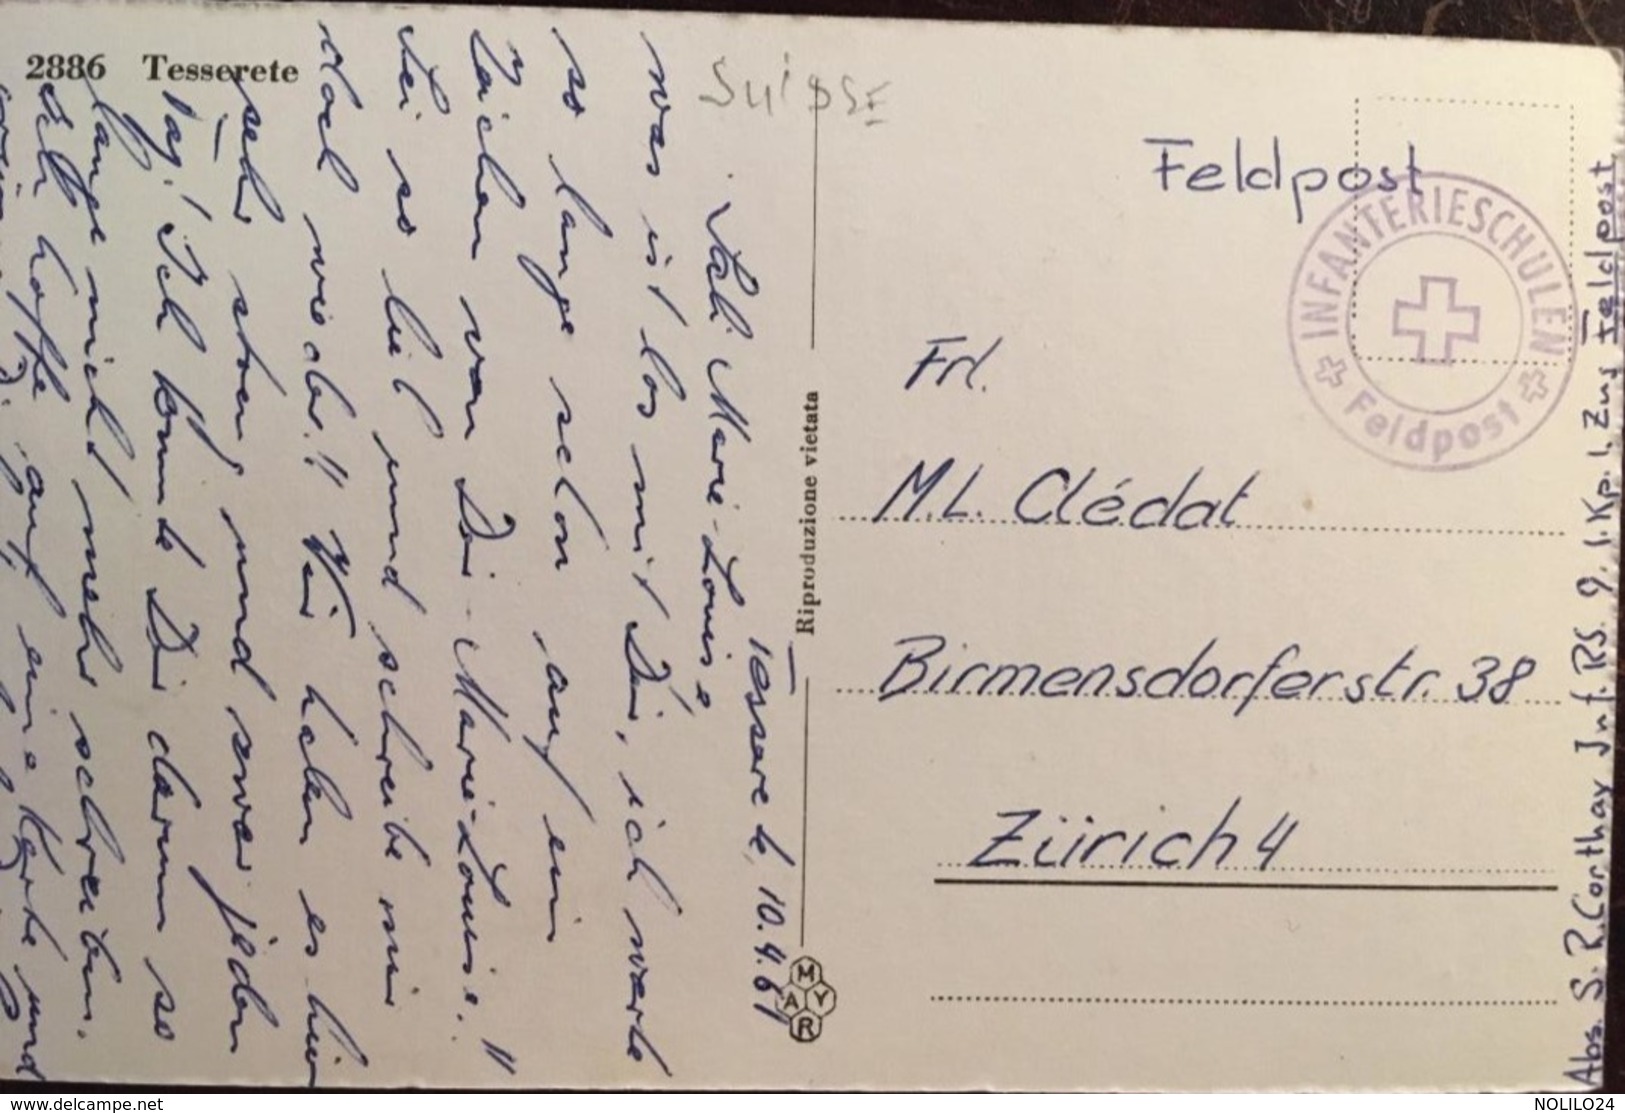 2886 Tesserete
Suisse
Tesserete, 10.4.61
Sali Marie-Louise,
was ist los mit Dir, ich warte
so lange schon auf ein
Zeichen von Dir Marie-Louise.!!
Sei so lieb und schreibe mir
doch wieder!! Wir haben es hier
sehr streng und zwar jeden
Tag! Ich konnte Dir darum so
lange nicht mehr schreiben.
Ich hoffe auf eine Karte und
Riproduzione vietata
MYAR
Feldpost
INFANTERIESCHULEN
Feldpost
Frl.
M.L. Clédat
Birmensdorferstr. 38
Zürich 4
Abs. S. R. Corthay Inf. RS. 9. I. Kp. I. Zug Feldpost
www.delcampe.net
NOLILO24